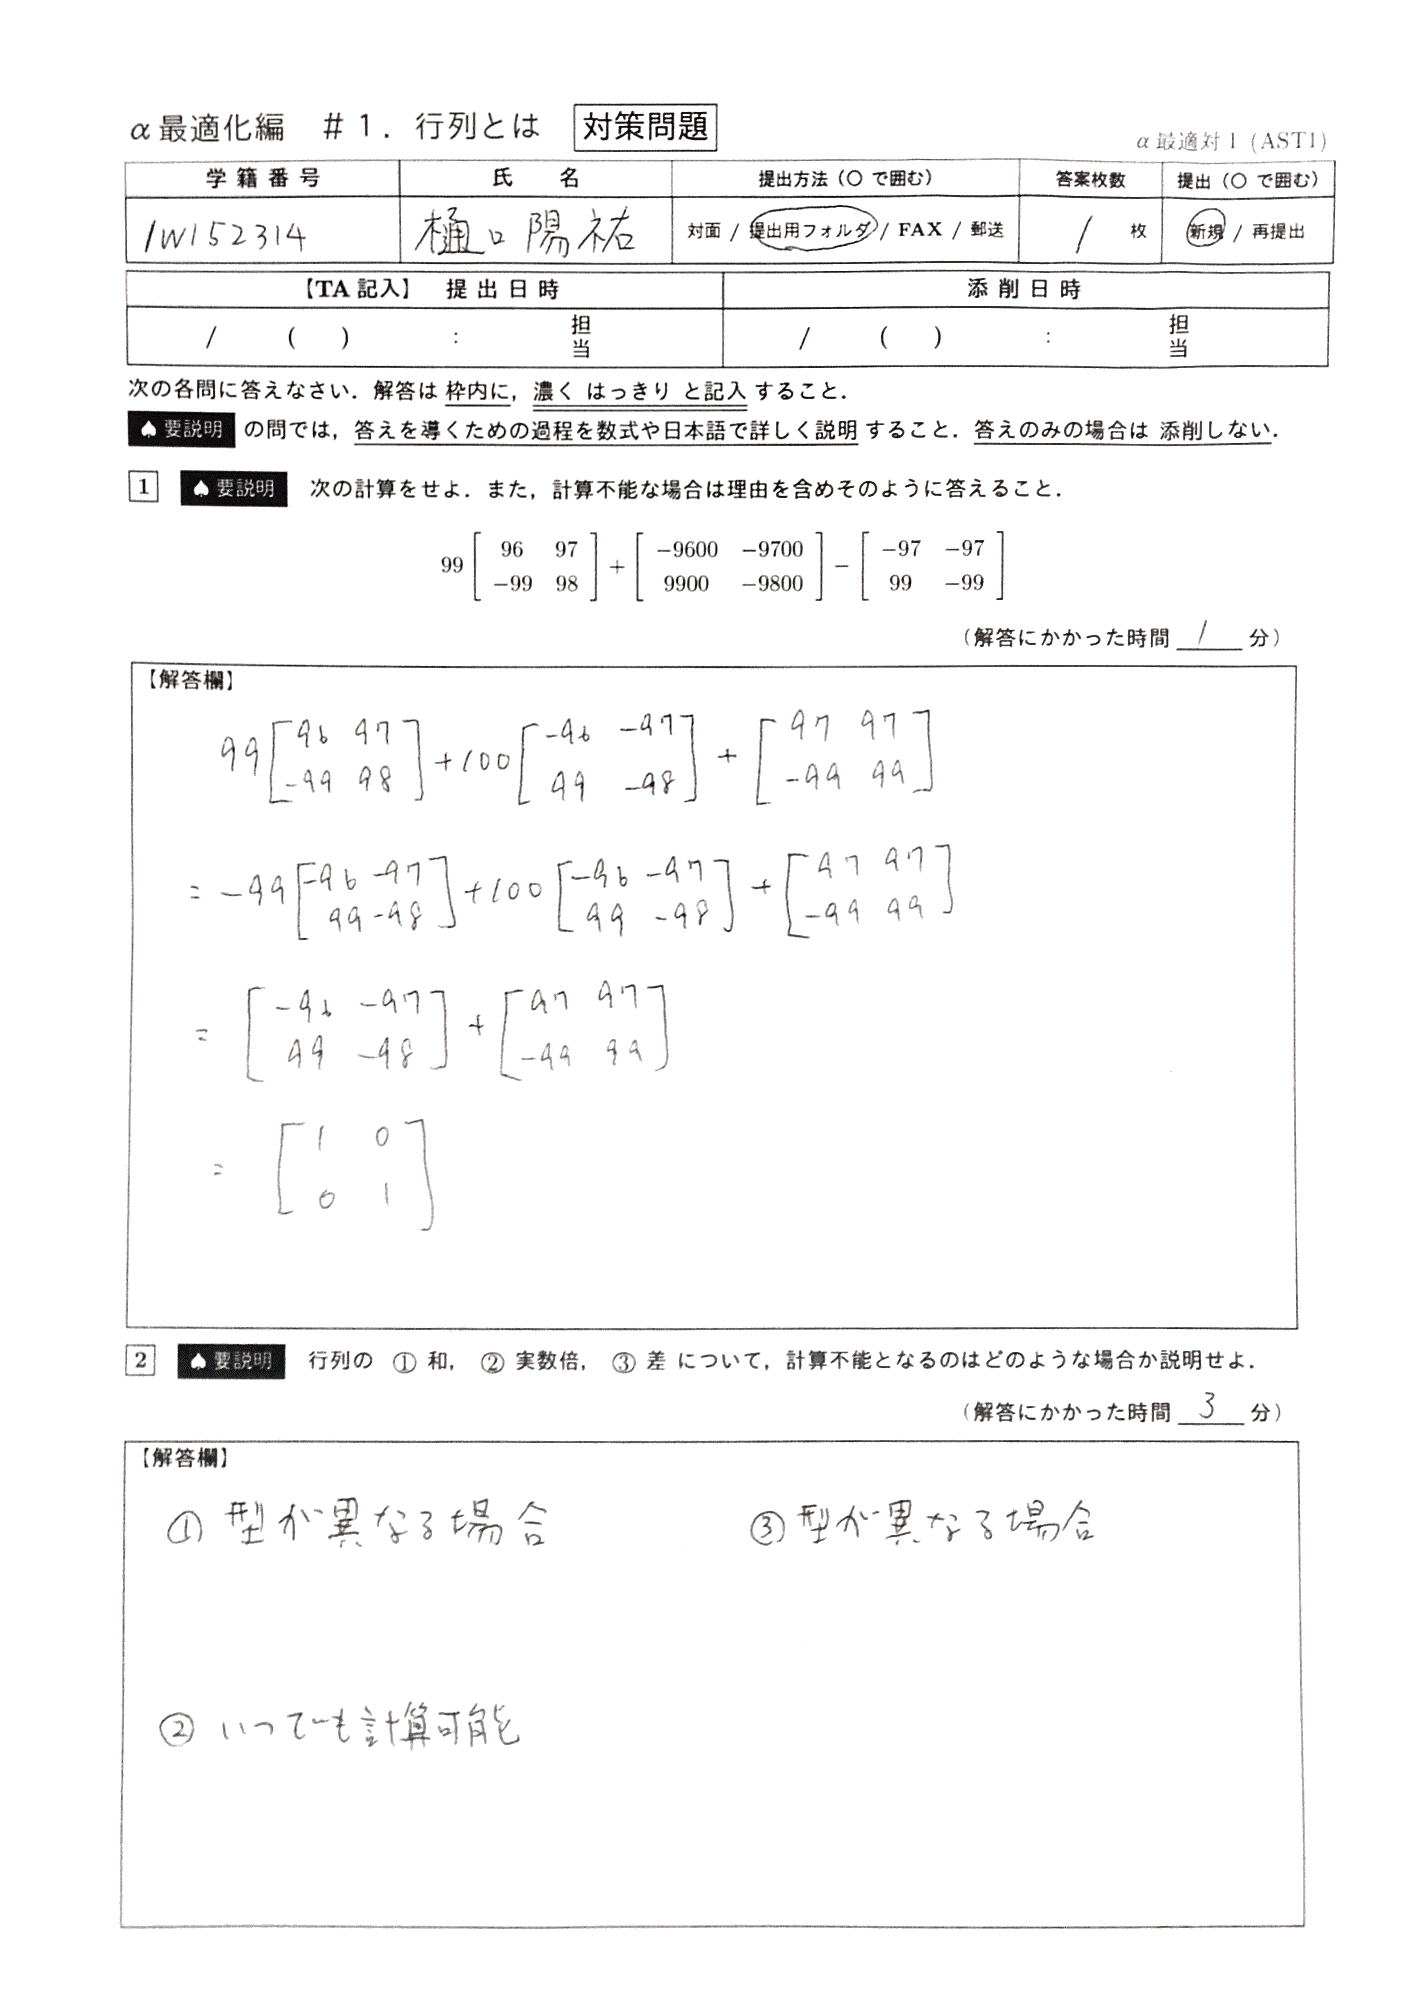 α最適化編 ＃１．行列とは 対策問題
α最適対1 (AST1)
学籍番号 氏名 提出方法（○で囲む） 答案枚数 提出（○で囲む）
1W152314 樋口陽祐 対面 / 提出用フォルダ / FAX / 郵送 1 枚 新規 / 再提出
【TA記入】 提出日時 添削日時
/ ( ) : 担当 / ( ) : 担当
次の各問に答えなさい．解答は 枠内に，濃く はっきり と記入 すること．
♠要説明 の問では，答えを導くための過程を数式や日本語で詳しく説明 すること．答えのみの場合は 添削しない．
1 ♠要説明 次の計算をせよ．また，計算不能な場合は理由を含めそのように答えること．
99 [ 96 97 ; −99 98 ] + [ −9600 −9700 ; 9900 −9800 ] − [ −97 −97 ; 99 −99 ]
（解答にかかった時間 1 分）
【解答欄】
99 [ 96 97 ; -99 98 ] + 100 [ -96 -97 ; 99 -98 ] + [ 97 97 ; -99 99 ]
= -99 [ -96 -97 ; 99 -98 ] + 100 [ -96 -97 ; 99 -98 ] + [ 97 97 ; -99 99 ]
= [ -96 -97 ; 99 -98 ] + [ 97 97 ; -99 99 ]
= [ 1 0 ; 0 1 ]
2 ♠要説明 行列の ① 和，② 実数倍，③ 差 について，計算不能となるのはどのような場合か説明せよ．
（解答にかかった時間 3 分）
【解答欄】
① 型が異なる場合 ③ 型が異なる場合
② いつでも計算可能